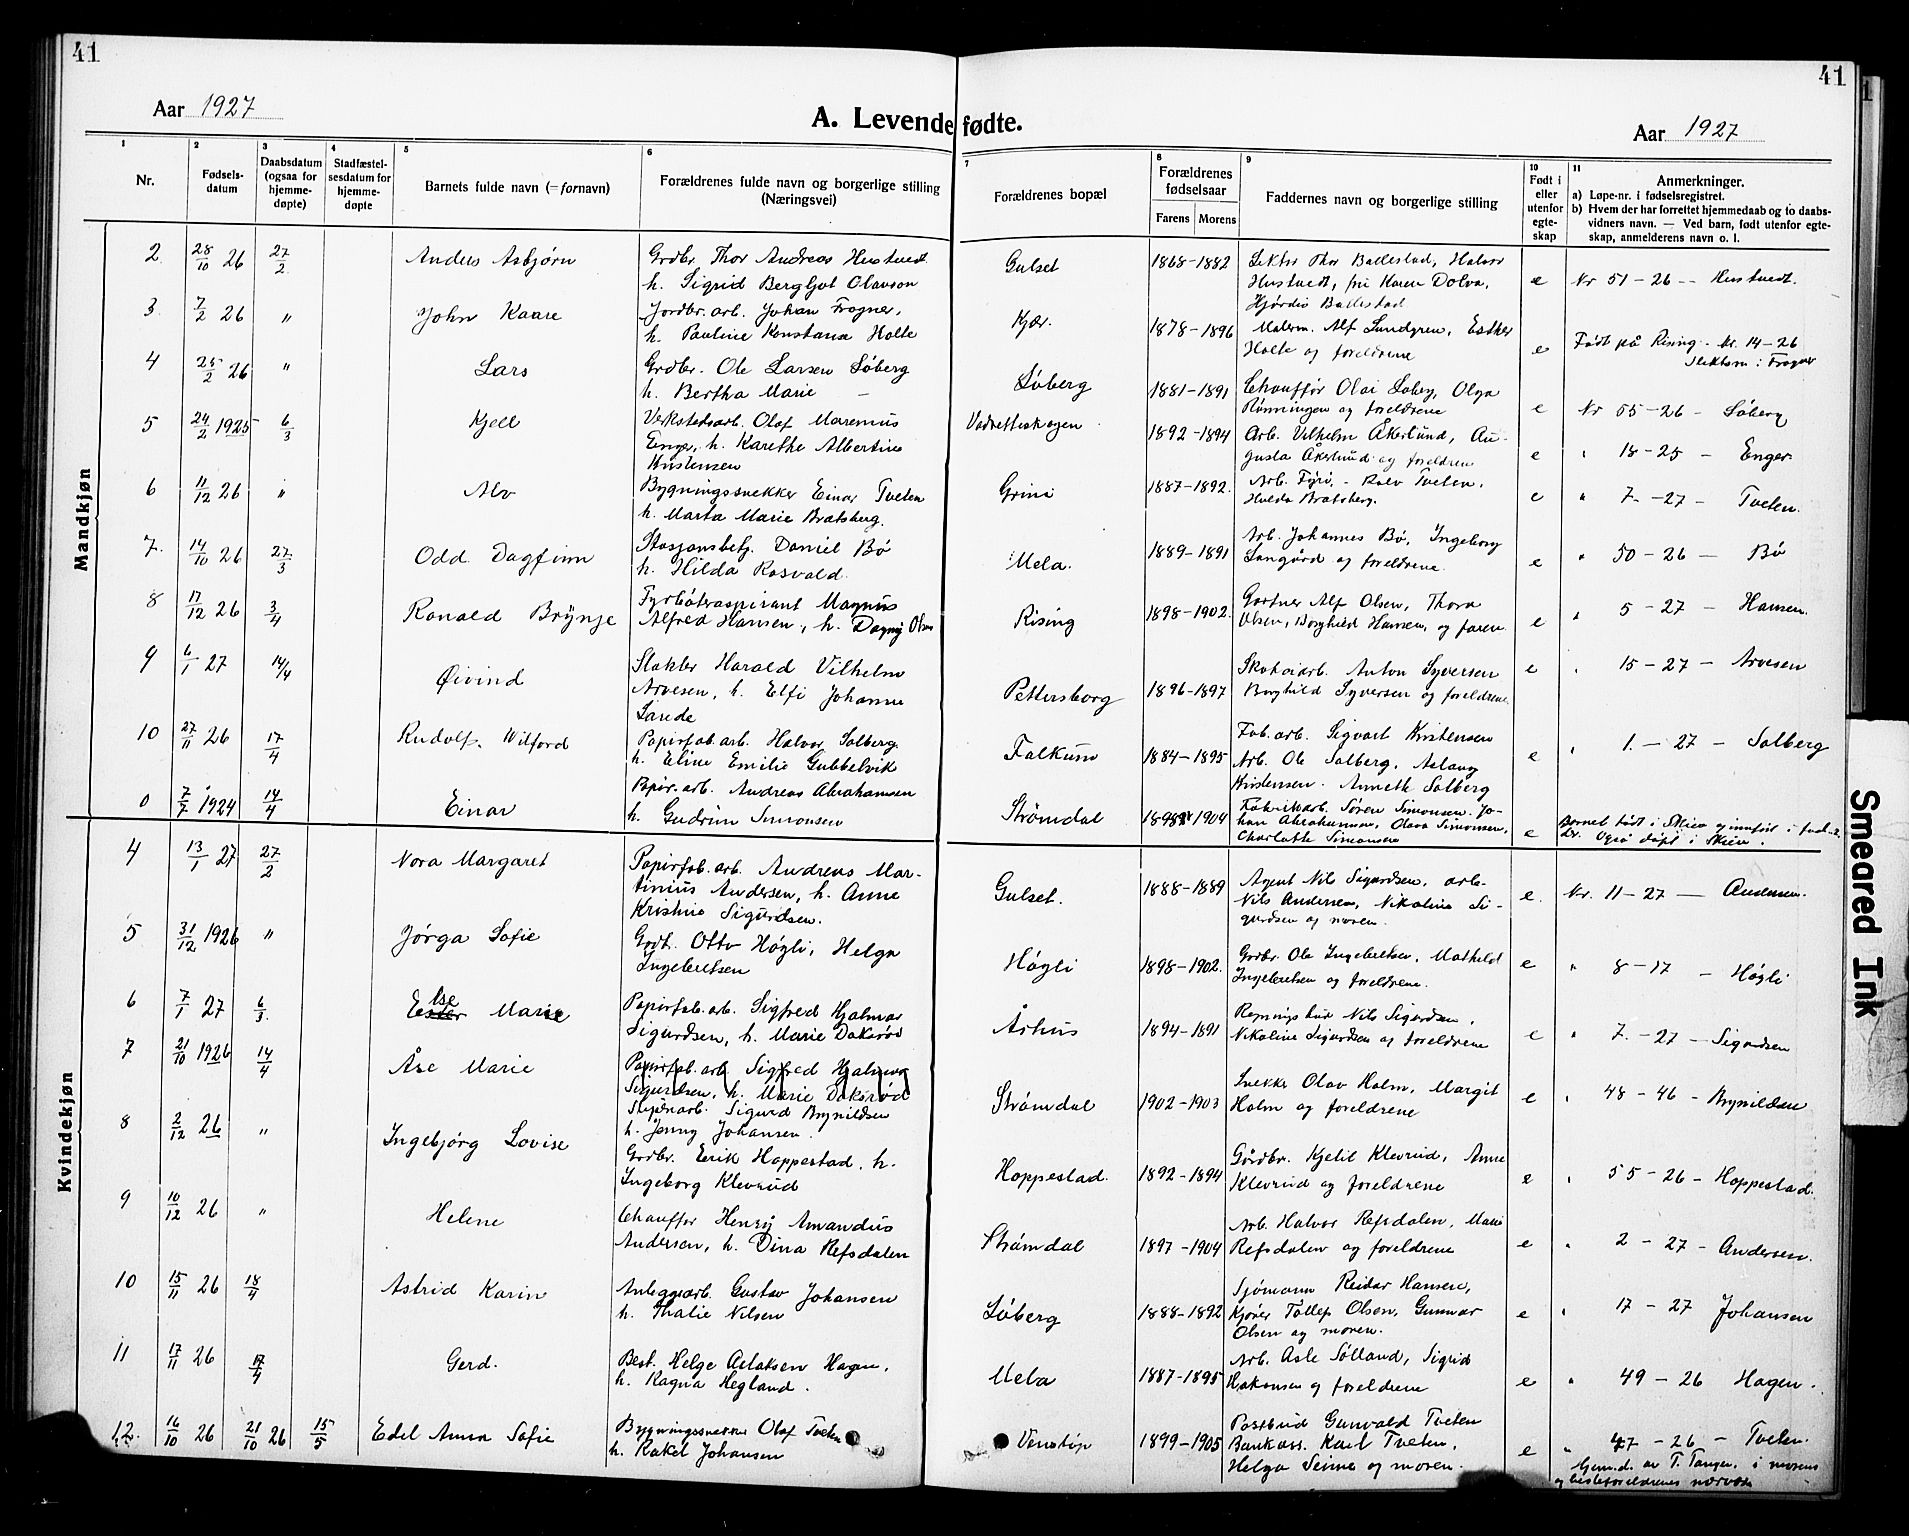 41
41
Aar 1927
A. Levendefødte.
Aar 1927
1
Nr.
2
Fødsels-
datum
3
Daabsdatum
(ogsaa for
hjemme-
døpte)
4
Stadfæstel-
sesdatum for
hjemme-
døpte
5
Barnets fulde navn (= fornavn)
6
Forældrenes fulde navn og borgerlige stilling
(Næringsvei)
7
Forældrenes bopæl
8
Forældrenes
fødselsaar
Farens Morens
9
Faddernes navn og borgerlige stilling
10
Født i
eller
utenfor
egte-
skap
11
Anmerkninger.
a) Løpe-nr. i fødselsregistret.
b) Hvem der har forrettet hjemmedaab og to daabs-
vidners navn. — Ved barn, født utenfor egte-
skap, anmelderens navn o. l.
Mandkjøn
2 28/10 26 27/2 Anders Asbjørn
Grdbr. Thor Andreas Hustvedt
h. Sigrid Bergljot Olavson
Gulset 1868-1882
Lektor Thor Ballestad, Halvor
Hustvedt, fru Karen Dolva,
Hjørdis Ballestad
e Nr 51-26 -- Hustvedt.
3. 7/2 26 " John Kaare
Jordbr. arb. Johan Frogner,
h. Pauline Konstanse Holte
Kjær. 1878-1896
Malerm. Alf Lundgren, Esther
Holte og foreldrene
e Født på Rising. Nr. 14-26
Slektsn: Frogner
4 25/2 26 " Lars
Grdbr. Ole Larsen Løberg
h. Bertha Marie —
Løberg 1881-1891
Chauffør Olai Løberg, Olga
Rønningen og foreldrene
e Nr 55-26 - Løberg
5 24/2 1925 6/3 Kjell
Verkstedsarb. Olaf Marenius
Enger, h. Karethe Albertine
Kristensen
Vadretteskogen 1892-1894
Arb. Vilhelm Åkerlund, Au-
gusta Åkerlund og foreldrene
e " 18-25 - Enger
6 11/12 26 " Alv
Bygningssnekker Einar Tveten
h. Marta Marie Bratsberg.
Grini 1887-1892.
Hulda Bratsberg.
e " 7.-27 - Tveten.
7. 14/10 26 27/3 Odd Dagfinn
Stasjonsbetj. Daniel Bø
h. Hilda Rosvald.
Mela. 1889-1891
Arb. Johannes Bø, Ingeborg
Langård og foreldrene.
e " 50-26 — Bø
8 17/12 26 3/4 Ronald Brynje
Fyrbøteraspirant Magnus
Alfred Hansen, h. Dagny Olsen
Rising 1898-1902.
Gartner Alf Olsen, Thora
Olsen, Borghild Hansen, og faren
e " 5-27 - Hansen.
9 6/1 27 14/4 Øivind
Stakler Harald Vilhelm
Arvesen, h. Elfi Johanne
Lande
Pettersborg 1896-1897
Skotøiarb. Anton Syversen
Borghild Syversen og foreldrene.
e . 15-27 - Arvesen
10 27/11 26 17/4 Rudolf. Wilford
Papirfab. arb. Halvor Solberg.
h. Eline Emilie Gubbelvik
Falkum 1884-1895
Fab. arb. Sigvart Kristensen
Arb. Ole Solberg, Aslaug
Kristensen. Anneth Solberg
e " 1.-27 - Solberg
0 7/7 1924 14/4 Einar
Bpir. arb. Andreas Abrahamsen
h. Gudrun Simonsen
Strømdal 1904
Fabrikarb. Søren Simonsen. Jo-
han Abrahamsen, Olava Simonsen,
Charlotte Simonsen
e Barnet født i Skien og innført i fød.
Også døpt i Skien.
Kvindekjøn
4 13/1 27 27/2 Nora Margaret
Papirfab. arb. Andreas Mar-
tinius Andersen, h. Anne
Kristine Sigurdsen.
Gulset. 1888-1889
Agent Nils Sigurdsen, arb.
Nils Andersen, Nikoline Si-
gurdsen og moren.
e. Nr. 11-27 — Andersen.
5 31/12 1926 " Jørga Sofie
Grdb. Otto Høgli, Helga
Ingebretsen
Høgli 1898-1902.
Grdbr. Ole Ingebretsen, Mathild
Ingebretsen og foreldrene.
e " 8-17 - Høgli
6 7/1 27 6/3. Else Marie
Papirfab. arb. Sigfred Hjalmar
Sigurdsen, h. Marie Doksrød
Århus 1894-1891
Nils Sigurdsen,
Nikoline Sigurdsen og foreldrene
e " 7.-27 - Sigurdsen
7 21/10 1926 14/4 Åse Marie
Papirfab. arb. Sigfred Hjalmar
Sigurdsen, h. Marie Doksrød
Sliperiarb. Sigurd Brynildsen
h. Jenny Johansen.
Strømdal 1902-1903
Snekker Olav Holm, Margit
Holm og foreldrene
e . 48-46 - Brynildsen
8 2/12 26 " Ingebjørg Lovise
Grdbr. Eerik Hoppestad, h.
Ingeborg Klevrud
Hoppestad. 1892-1894
Gårdbr. Kjetil Klevrud, Anne
Klevrud og foreldrene
e . 55-26 - Hoppestad.
9 10/12 26 " Helene
Chauffør Henry Amandus
Andersen, h. Dina Refsdalen
Strømdal 1897-1904
Arb. Halvor Refsdalen, Marie
Refsdalen og foreldrene
e . 2-27 - Andersen.
10 15/11 26 18/4 Astrid Karin
Anleggsarb. Gustav Johansen
h. Thalie Nilsen
Løberg 1888-1892
Sjømann Reidar Hansen,
Kjører Tollef Olsen, Gunnvor
Olsen og moren.
e " 17-27 Johansen
11 17/11 26 17/4 Gerd.
Best. Helge Aslaksen Hagen,
h. Ragna Hegland.
Mela 1887-1895
Arb. Asle Sølland, Sigrid
Håkonsen og foreldrene
e " 49-26 - Hagen.
12. 16/10 26 21/10 26 15/5 Edel Anna Sofie
Bygningssnekker Olaf Tveten
h. Rakel Johansen
Venstøp 1899-1905
Postbud Gunvald Tveten
Bankass. Karl Tveten,
Helga Seime og moren.
e " 47-26 - Tveten.
Hjem.d. av T. Tanger, i morens
og besteforeldrenes nærvær
Smeared Ink